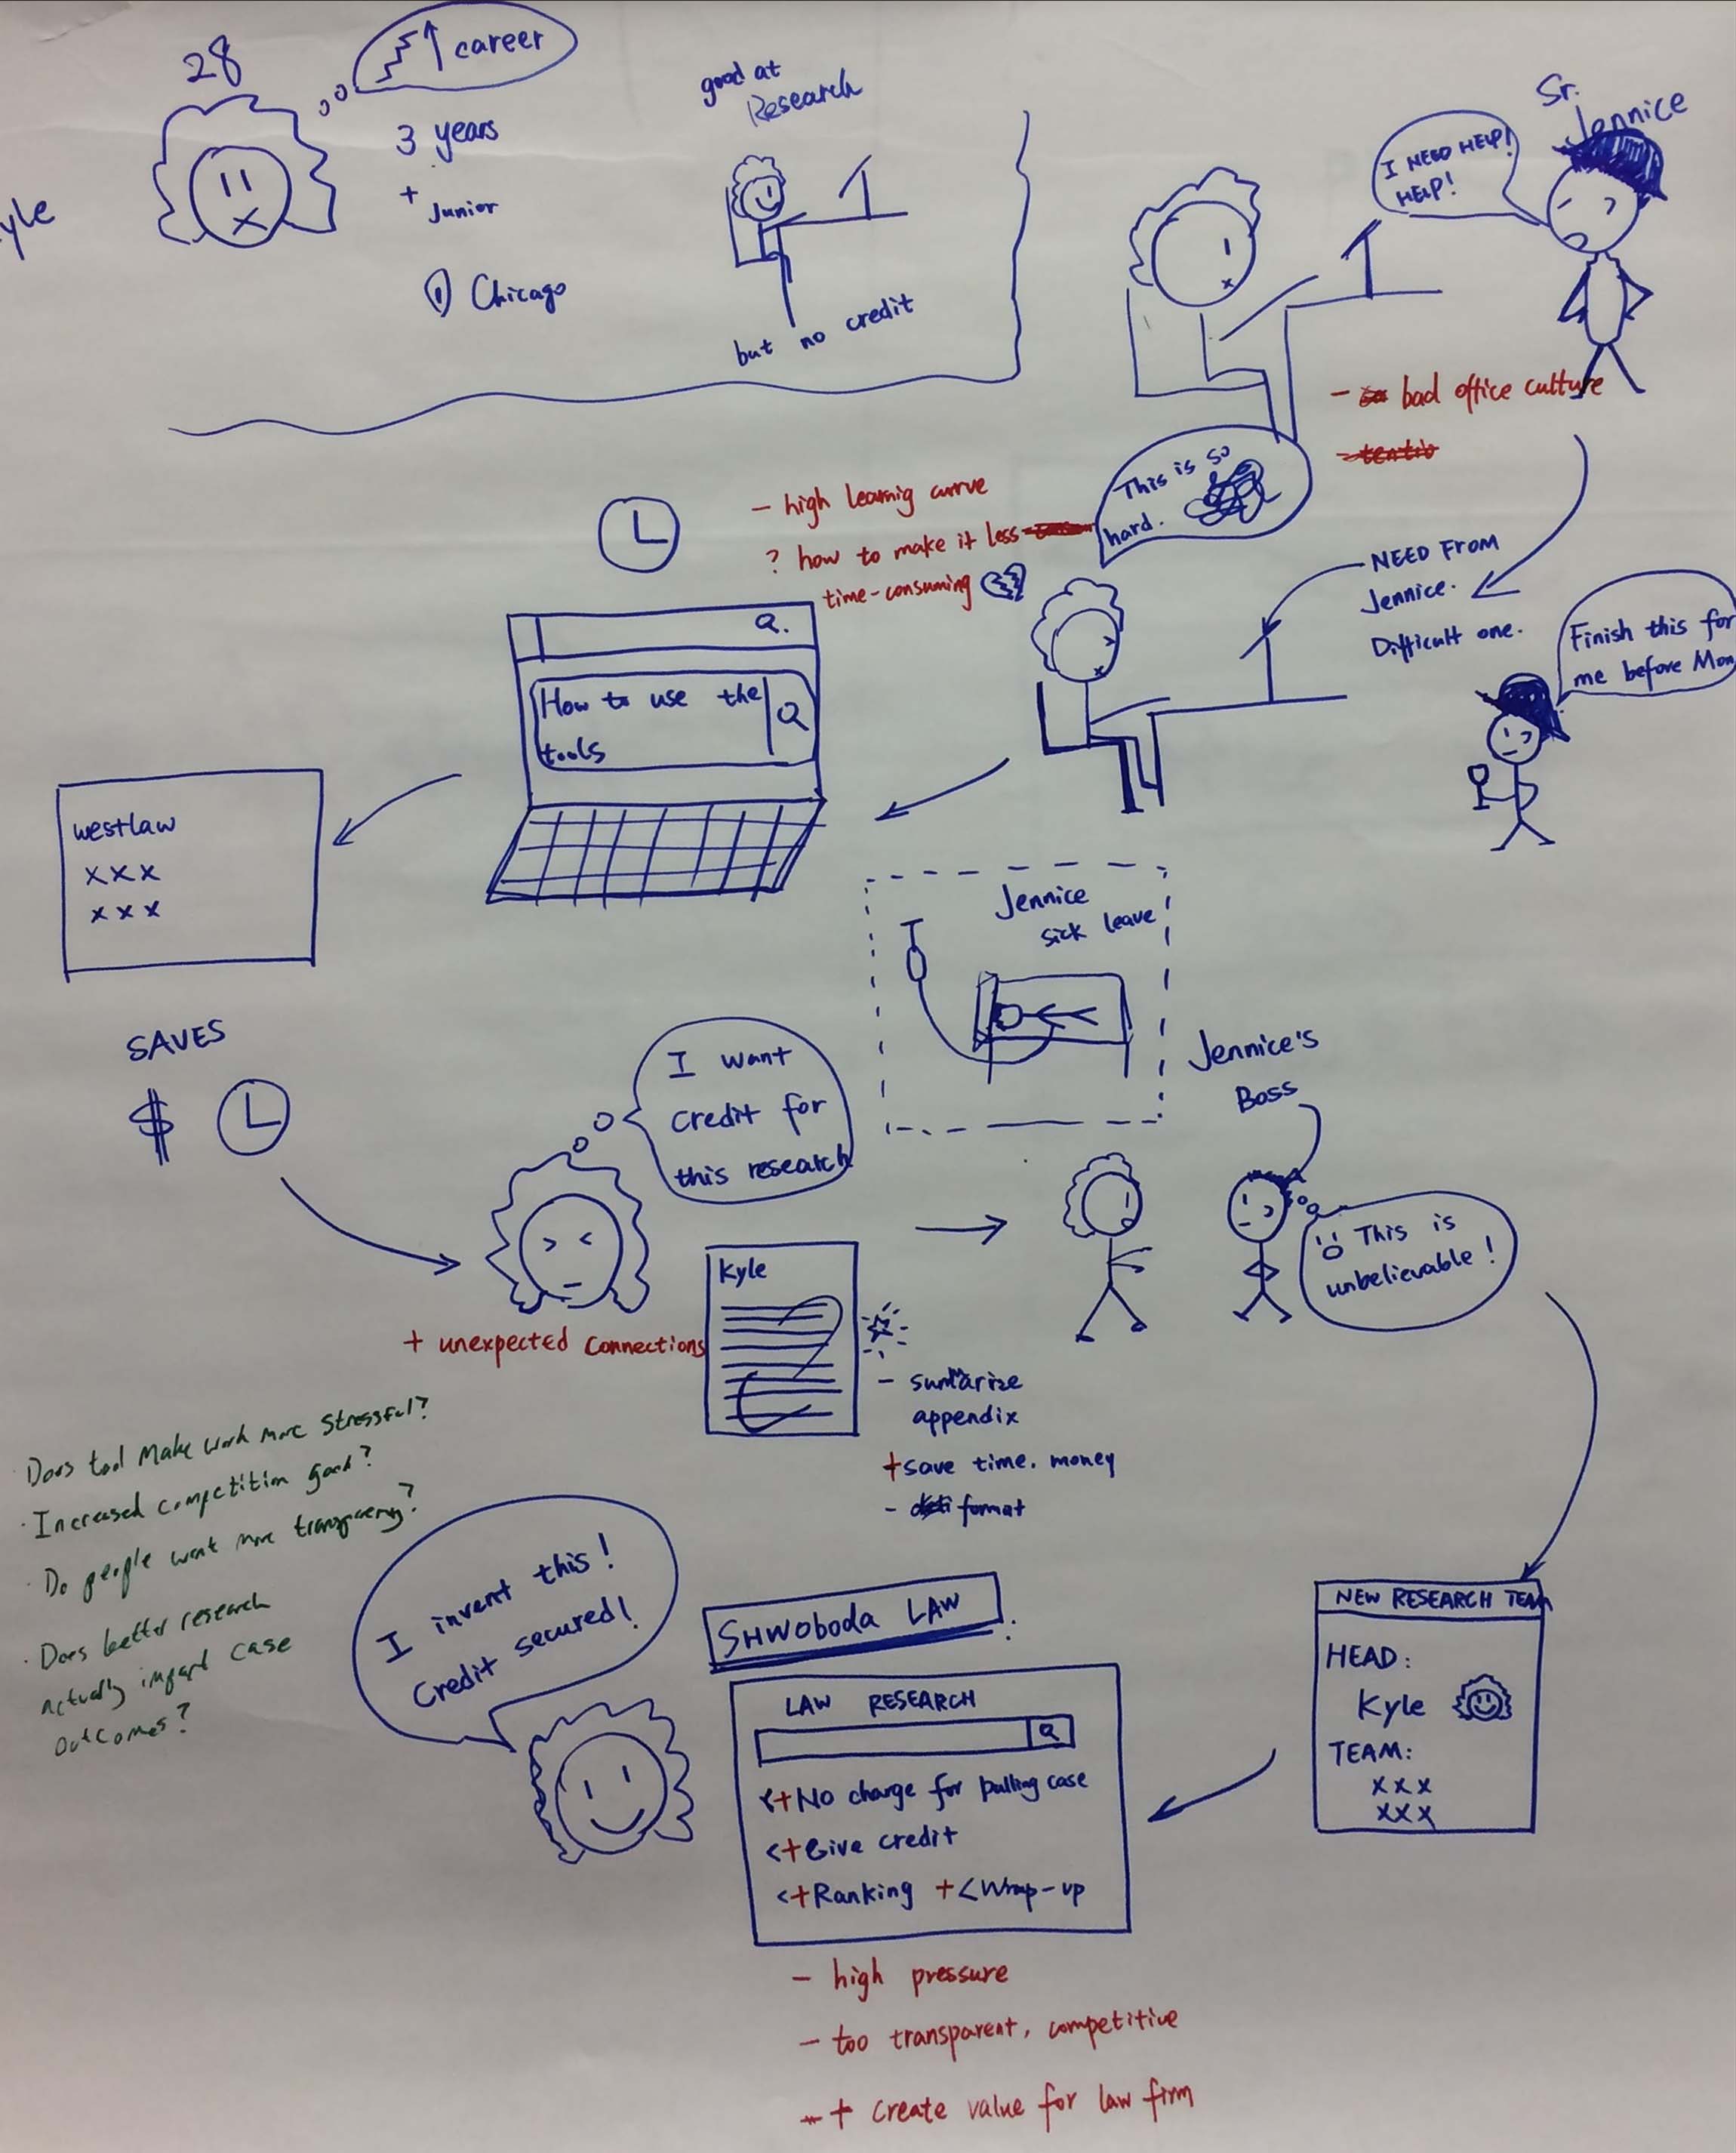 28
career
3 years
+ Junior
Chicago
yle
good at
Research
but no credit
Sr.
Jennice
I NEED HELP!
HELP!
- bad office culture
This is so
hard.
- high learnig curve
? how to make it less
time-consuming
NEED FROM
Jennice.
Difficult one.
Finish this for
me before Mon
How to use the
tools
westlaw
xxx
xxx
Jennice
sick leave
SAVES
$
I want
credit for
this research
Jennice's
Boss
This is
unbelievable!
Kyle
+ unexpected connections
- summarize
appendix
+save time. money
- format
· Does tool make work more stressful?
· Increased competition good?
· Do people want more transparency?
· Does better research
actually impact case
outcomes?
I invent this!
Credit secured!
SHWoboda LAW
LAW RESEARCH
<+No charge for pulling case
<+Give credit
<+Ranking +<Wrap-up
NEW RESEARCH TEAM
HEAD:
Kyle
TEAM:
xxx
xxx
- high pressure
- too transparent, competitive
+ create value for law firm